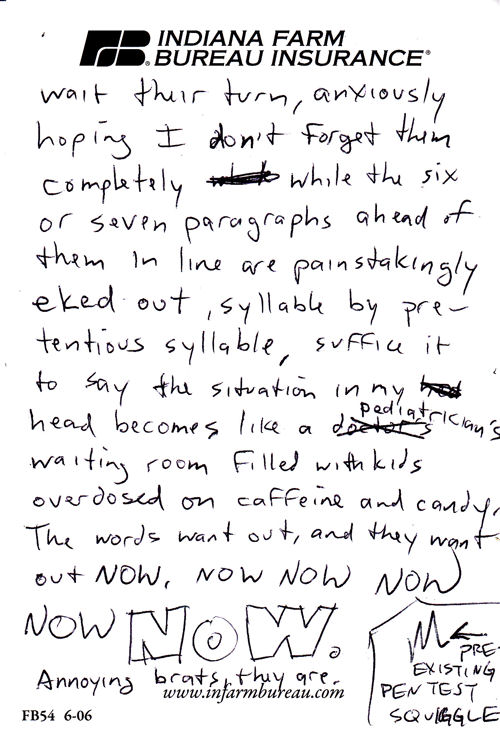 INDIANA FARM
BUREAU INSURANCE®
wait their turn, anxiously
hoping I don't forget them
completely while the six
or seven paragraphs ahead of
them in line are painstakingly
eked out, syllable by pre-
tentious syllable, suffice it
to say the situation in my
head becomes like a doctor's pediatrician's
waiting room filled with kids
overdosed on caffeine and candy.
The words want out, and they want
out NOW. NOW NOW NOW
NOW NOW.
Annoying brats, they are.
PRE-
EXISTING
PEN TEST
SQUIGGLE
www.infarmbureau.com
FB54 6-06